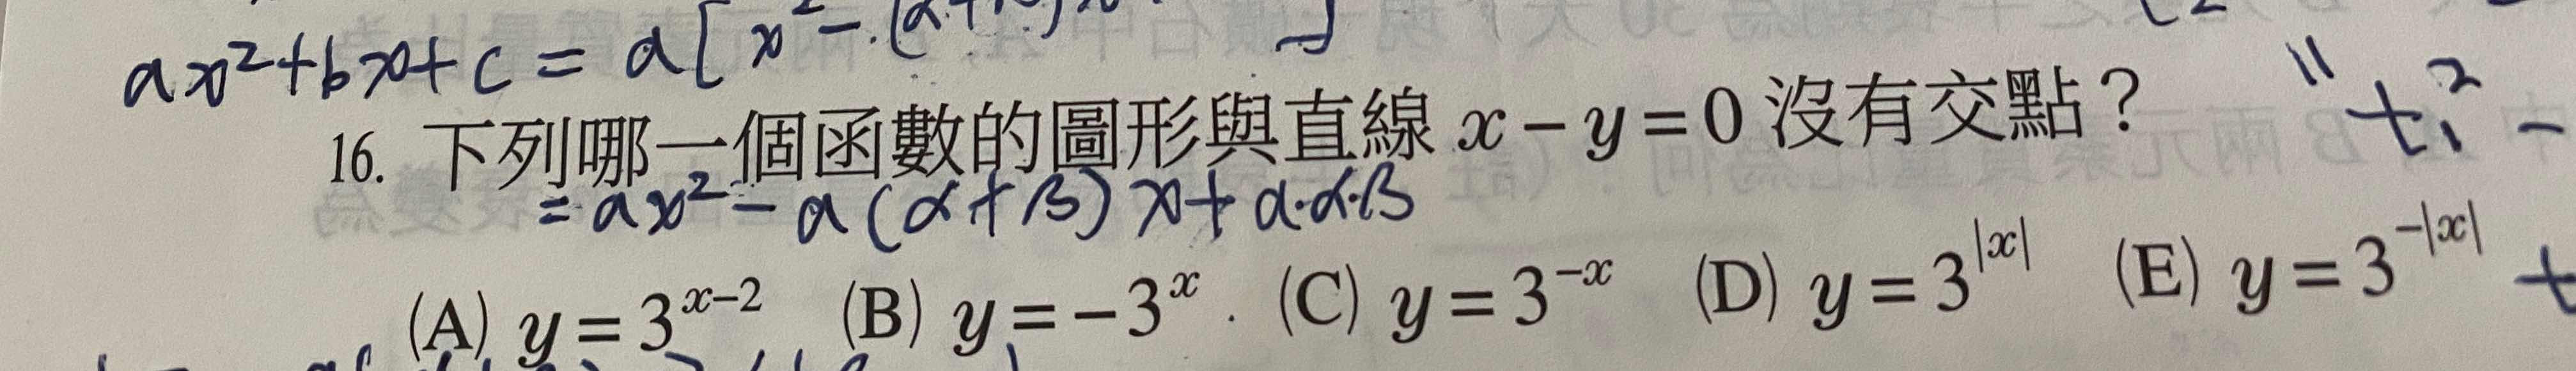 ax²+bx+c = a[x²-(α+
16. 下列哪一個函數的圖形與直線 x - y = 0 沒有交點？
= ax² - a(α+β)x + a·α·β
(A) y = 3^{x-2} (B) y = -3^{x} (C) y = 3^{-x} (D) y = 3^{|x|} (E) y = 3^{-|x|}